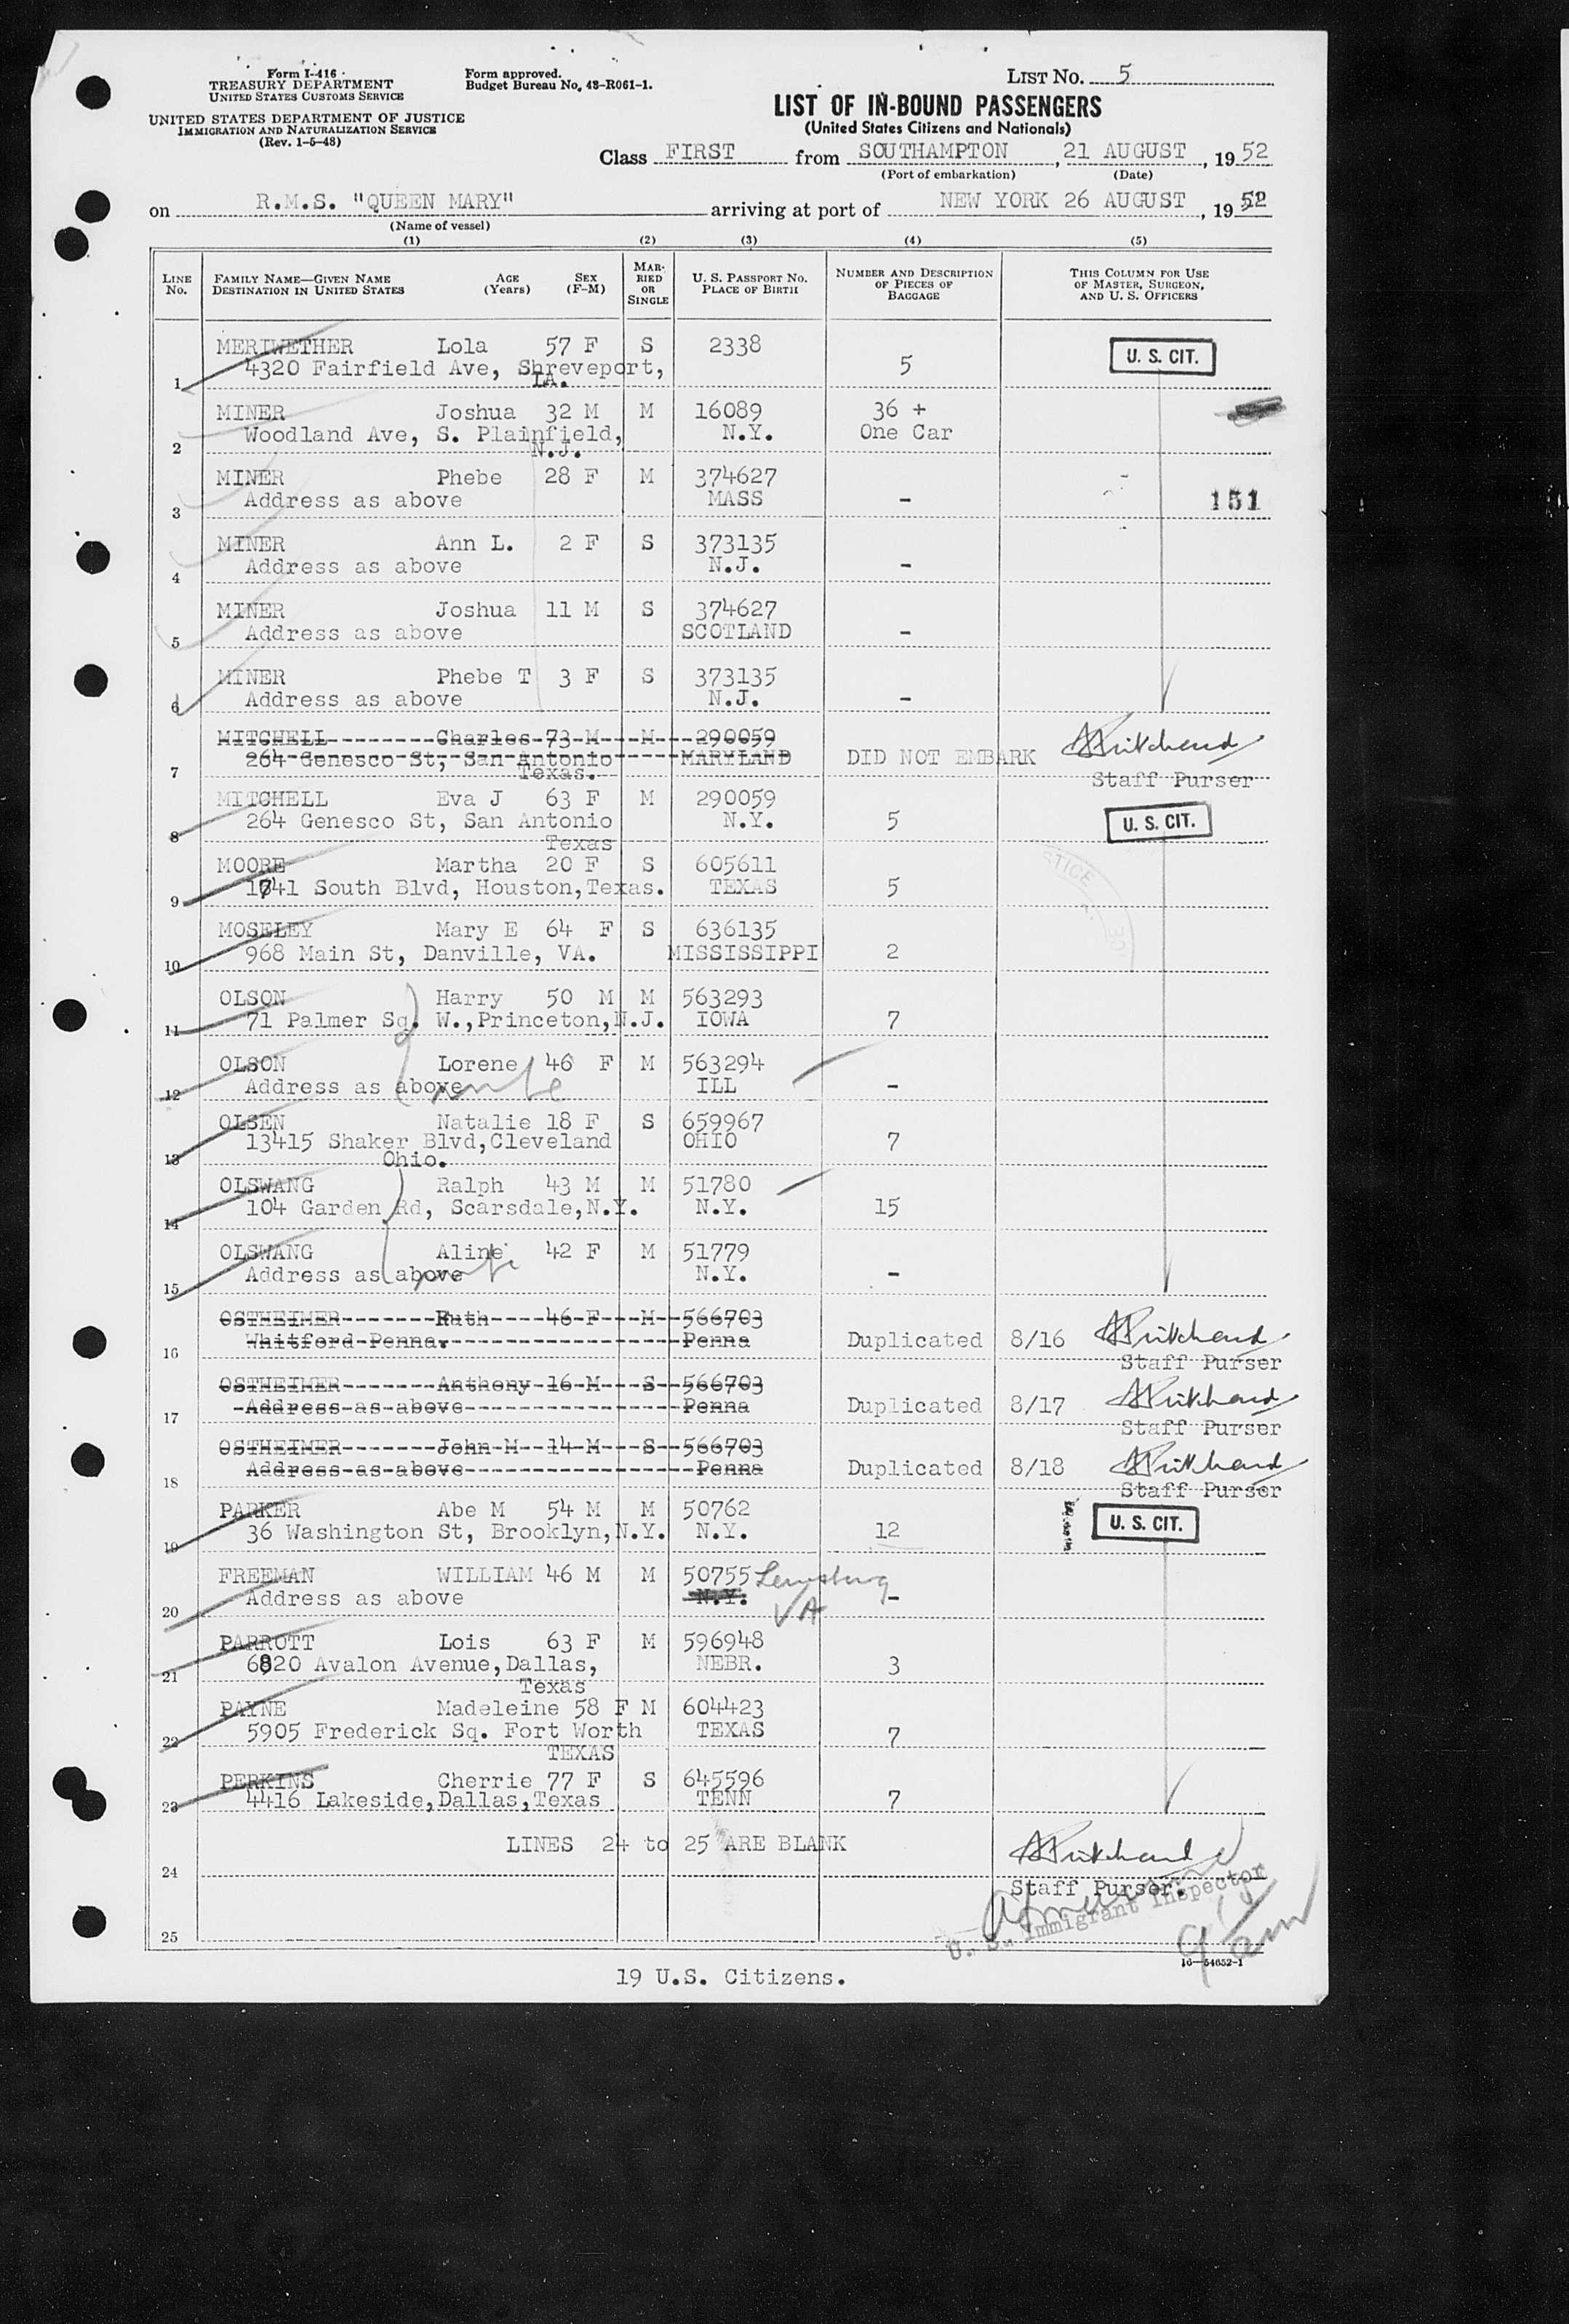 Form I-416
TREASURY DEPARTMENT
UNITED STATES CUSTOMS SERVICE
UNITED STATES DEPARTMENT OF JUSTICE
IMMIGRATION AND NATURALIZATION SERVICE
(Rev. 1-5-48)
Form approved.
Budget Bureau No. 43-R061-1.
LIST NO. 5
LIST OF IN-BOUND PASSENGERS
(United States Citizens and Nationals)
Class FIRST from SOUTHAMPTON, 21 AUGUST, 19 52
(Port of embarkation) (Date)
on R.M.S. "QUEEN MARY" arriving at port of NEW YORK 26 AUGUST, 19 52
(Name of vessel)
(1) (2) (3) (4) (5)
LINE NO. FAMILY NAME—GIVEN NAME DESTINATION IN UNITED STATES AGE (Years) SEX (F-M) MARRIED OR SINGLE U. S. PASSPORT NO. PLACE OF BIRTH NUMBER AND DESCRIPTION OF PIECES OF BAGGAGE THIS COLUMN FOR USE OF MASTER, SURGEON, AND U. S. OFFICERS
MERIWETHER Lola 57 F S 2338 U. S. CIT.
1 4320 Fairfield Ave, Shreveport, 5
LA.
MINER Joshua 32 M M 16089 36 +
2 Woodland Ave, S. Plainfield, N.Y. One Car
N.J.
MINER Phebe 28 F M 374627
3 Address as above MASS - 151
MINER Ann L. 2 F S 373135
4 Address as above N.J. -
MINER Joshua 11 M S 374627
5 Address as above SCOTLAND -
MINER Phebe T 3 F S 373135
6 Address as above N.J. -
MITCHELL Charles 73 M M 290059
7 264 Genesco St, San Antonio MARYLAND DID NOT EMBARK Pritchard
Texas. Staff Purser
MITCHELL Eva J 63 F M 290059
8 264 Genesco St, San Antonio N.Y. 5 U. S. CIT.
Texas
MOORE Martha 20 F S 605611
9 1741 South Blvd, Houston, Texas. TEXAS 5
MOSELEY Mary E 64 F S 636135
10 968 Main St, Danville, VA. MISSISSIPPI 2
OLSON Harry 50 M M 563293
11 71 Palmer Sq. W., Princeton, N.J. IOWA 7
OLSON Lorene 46 F M 563294
12 Address as above ILL -
OLSEN Natalie 18 F S 659967
13 13415 Shaker Blvd, Cleveland OHIO 7
Ohio.
OLSWANG Ralph 43 M M 51780
14 104 Garden Rd, Scarsdale, N.Y. N.Y. 15
OLSWANG Aline 42 F M 51779
15 Address as above N.Y. -
OSTHEIMER Ruth 46 F M 566703
16 Whitford Penna. Penna Duplicated 8/16 Pritchard
Staff Purser
OSTHEIMER Anthony 16 M S 566703
17 Address as above Penna Duplicated 8/17 Pritchard
Staff Purser
OSTHEIMER John M 14 M S 566703
18 Address as above Penna Duplicated 8/18 Pritchard
Staff Purser
PARKER Abe M 54 M M 50762
19 36 Washington St, Brooklyn, N.Y. N.Y. 12 U. S. CIT.
FREEMAN WILLIAM 46 M M 50755
20 Address as above N.Y. VA -
PARROTT Lois 63 F M 596948
21 6820 Avalon Avenue, Dallas, NEBR. 3
Texas
PAYNE Madeleine 58 F M 604423
22 5905 Frederick Sq. Fort Worth TEXAS 7
TEXAS
PERKINS Cherrie 77 F S 645596
23 4416 Lakeside, Dallas, Texas TENN 7
LINES 24 to 25 ARE BLANK Pritchard
24 Staff Purser.
U. S. Immigrant Inspector
25
16—54652-1
19 U.S. Citizens.